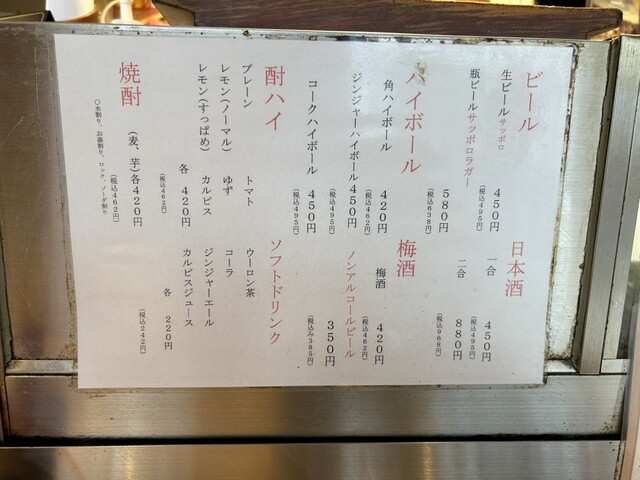 ビール
生ビールサッポロ 450円
(税込495円)
瓶ビールサッポロラガー 580円
(税込638円)
ハイボール
角ハイボール 420円
(税込462円)
ジンジャーハイボール 450円
(税込495円)
コークハイボール 450円
(税込495円)
酎ハイ
プレーン トマト
レモン(ノーマル) ゆず
レモン(すっぱめ) カルピス
各 420円
(税込462円)
焼酎
(麦、芋)各420円
(税込462円)
○水割り、お湯割り、ロック、ソーダ割り
日本酒
一合 450円
(税込495円)
二合 880円
(税込968円)
梅酒
梅酒 420円
(税込462円)
ノンアルコールビール
350円
(税込み385円)
ソフトドリンク
ウーロン茶
コーラ
ジンジャーエール
カルピスジュース
各 220円
(税込242円)